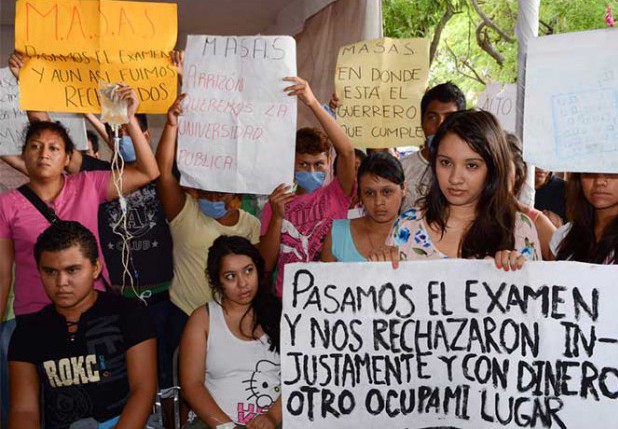 M.A.S.A.S
PASAMOS EL EXAMEN
Y AUN ASI FUIMOS
RECHAZADOS
M.A.S.A.S
ARRIZÓN
QUEREMOS LA
UNIVERSIDAD
PUBLICA
MASAS
EN DONDE
ESTÁ EL
GUERRERO
QUE CUMPLE
ALTO
CLUB
ROKC
PASAMOS EL EXAMEN
Y NOS RECHAZARON IN-
JUSTAMENTE Y CON DINERO
OTRO OCUPA MI LUGAR